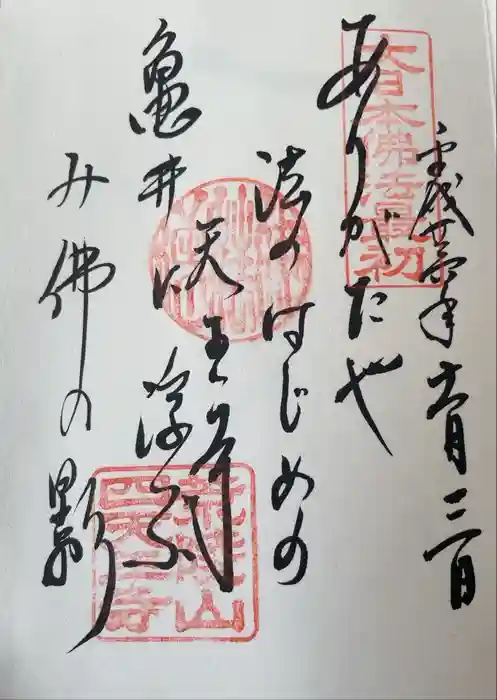 大日本佛法最初
平成廿年六月三日
ありがたや
法のはじめの
天王寺
亀井に浮ぶ
み佛の影
荒陵山
四天王寺